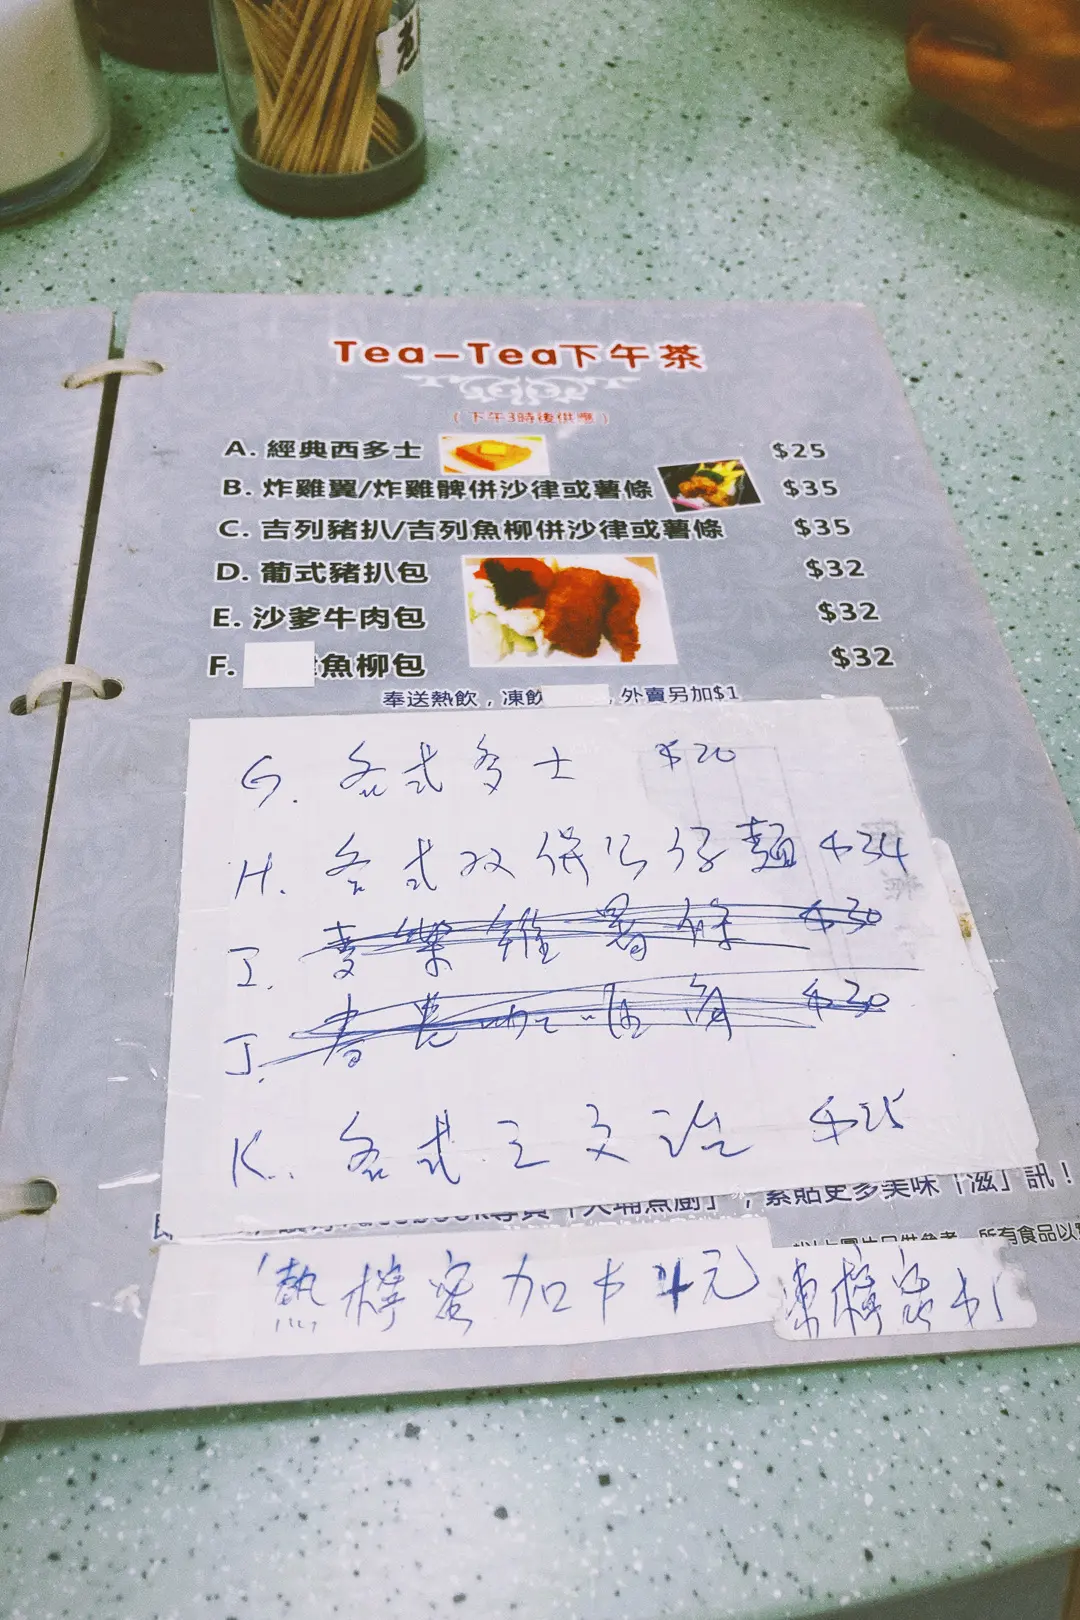 Tea-Tea下午茶
(下午3時後供應)
A. 經典西多士 $25
B. 炸雞翼/炸雞髀併沙律或薯條 $35
C. 吉列豬扒/吉列魚柳併沙律或薯條 $35
D. 葡式豬扒包 $32
E. 沙爹牛肉包 $32
F. 魚柳包 $32
奉送熱飲，凍飲 ，外賣另加$1
G. 各式多士 $20
H. 各式双併公仔麵 $34
I. 麥樂雞薯條 $30
J. $30
K. 各式三文治 $25
，緊貼更多美味「滋」訊！
所有食品以
熱檸蜜加$4元 凍檸蜜$1